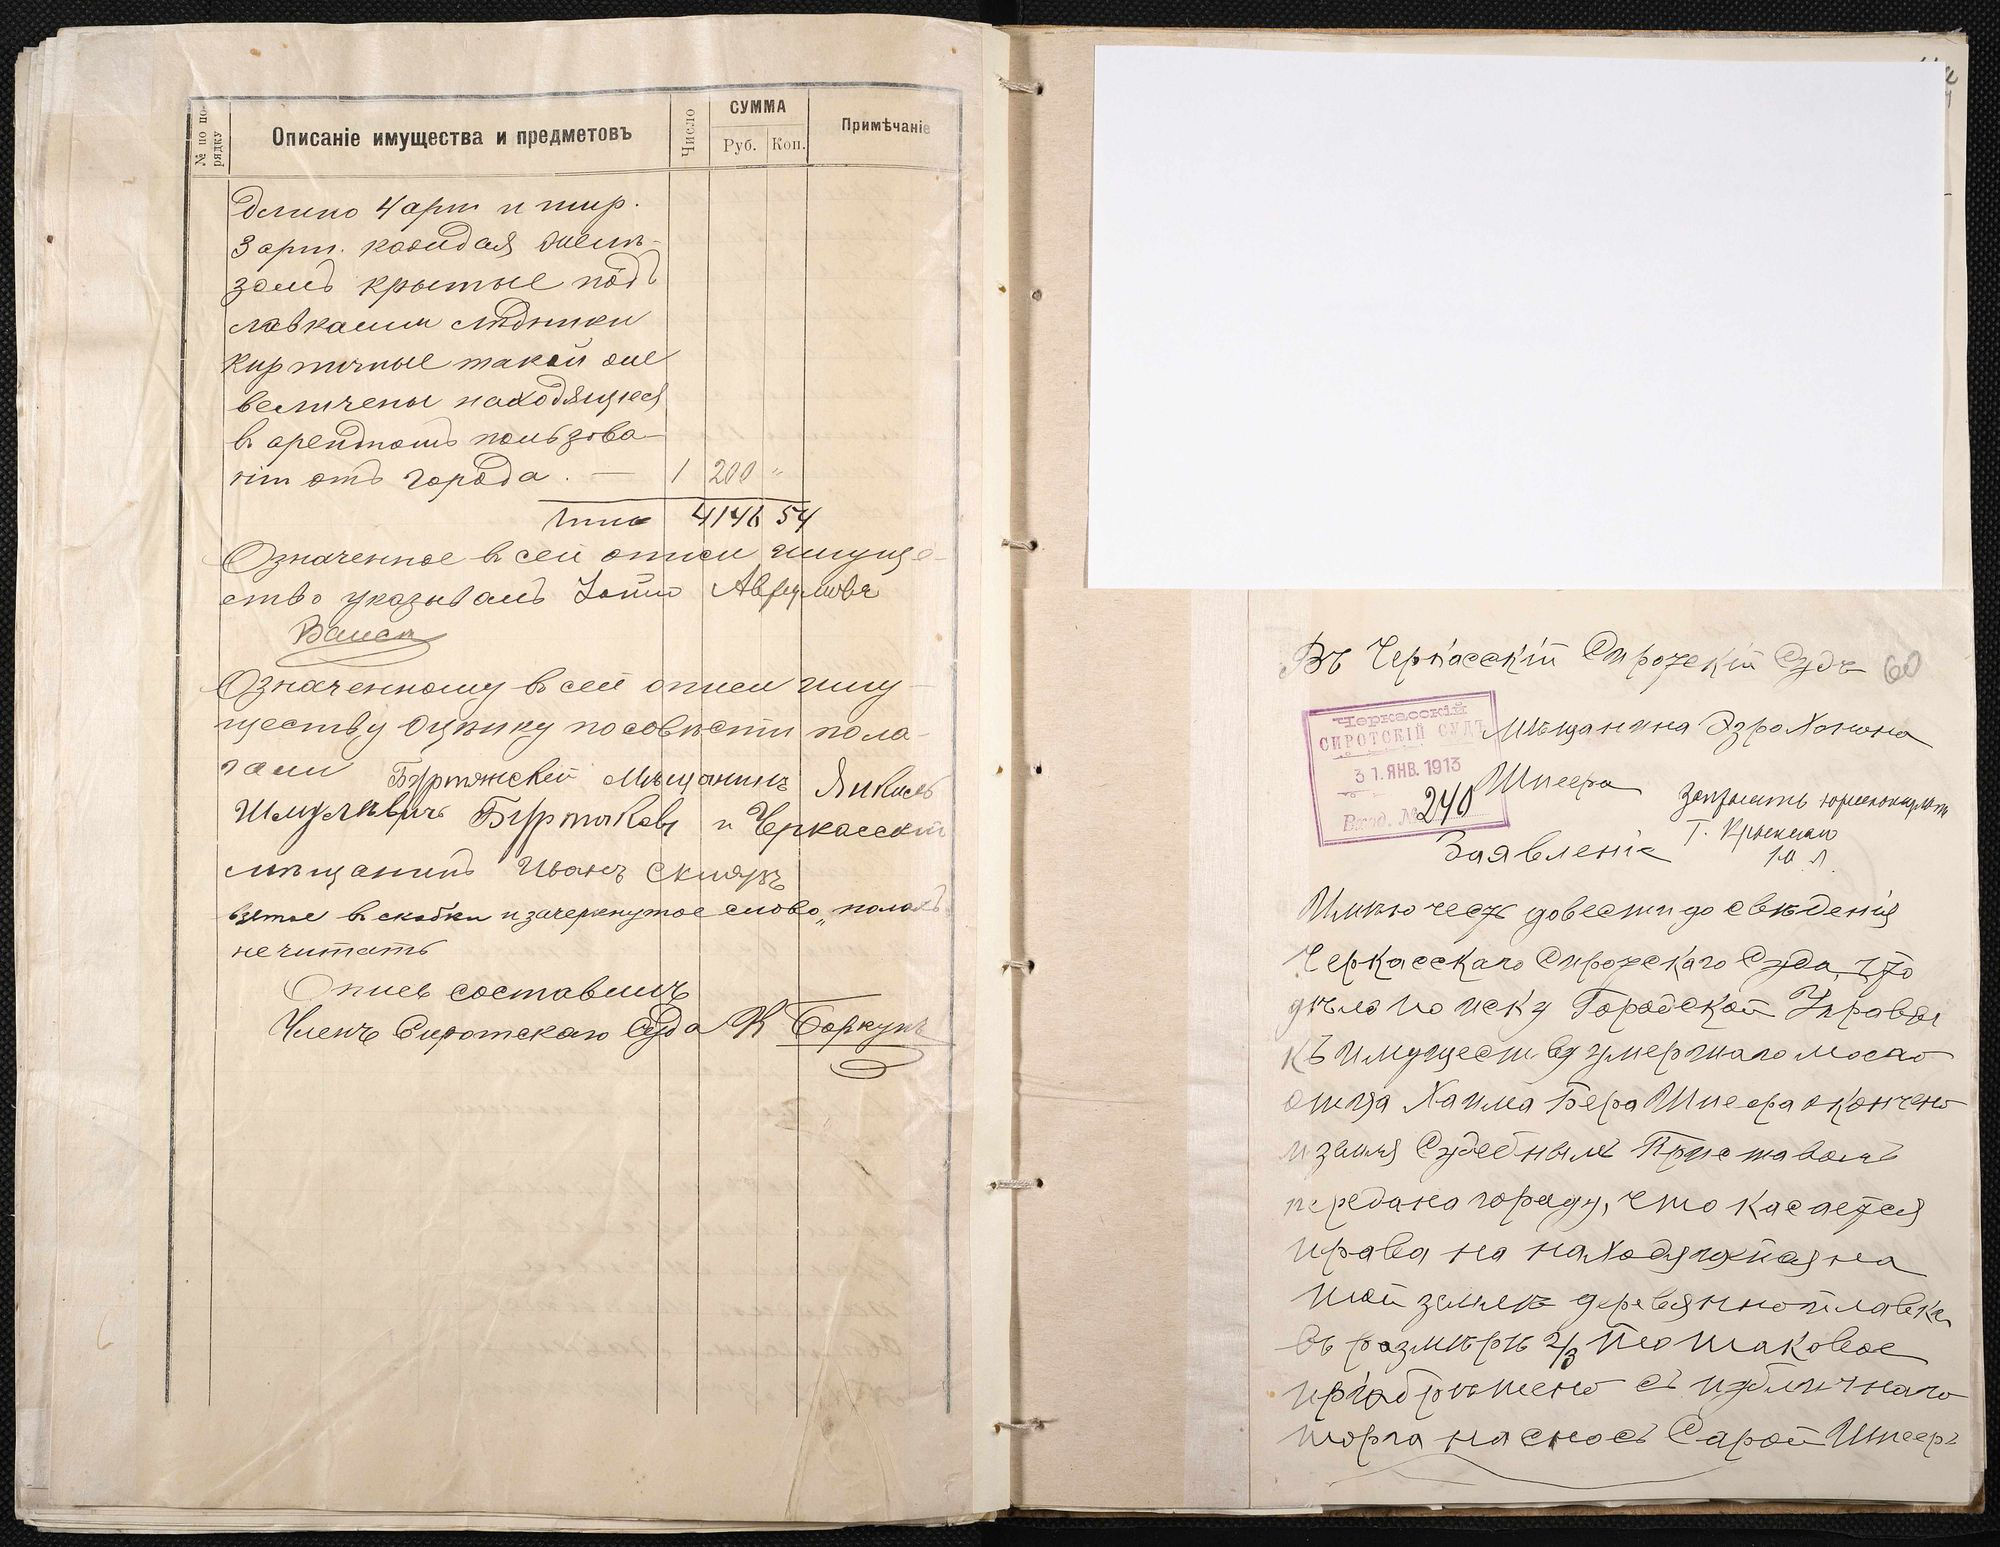 № по по-
рядку
Описаніе имущества и предметовъ
Число
СУММА
Руб.
Коп.
Примѣчаніе
длино 4 арш и шир.
3 арш. каждая желѣ-
зомъ крытые подъ
лавками ледники
кирпичные такой же
величены находящіеся
въ арендномъ пользова-
ніи отъ города. — 1 200 "
Итого 4146 54
Означенное въ сей описи имуще-
ство указывалъ Аврумовъ
Означенному въ сей описи иму-
ществу оцѣнку по совѣсти пола-
гали мѣщанинъ
Шмулевичъ и Черкасскій
мѣщанинъ Иванъ Скляръ
взятое въ скобки и зачеркнутое слово „полокъ"
не читать
Опись составилъ
Членъ Сиротскаго Суда К Боркунъ
Въ Черкасскій Сиротскій Судъ
60
Черкасскій
СИРОТСКІЙ СУДЪ
31. ЯНВ. 1913
Вход. № 240
Мѣщанина Эзро Хонона
Шпеера
Заявленіе
Имѣю честь довести до свѣденія
Черкасскаго Сиротскаго Суда, что
дѣло по иску Городской Управы
къ имуществу умершаго моего
отца Хаима Бера Шпеера окончено
и земля Судебнымъ Приставомъ
передана городу, что касается
права на находящейся на
той землѣ деревянной лавки
въ размѣрѣ 2/3 то таковое
пріобрѣтено съ публичнаго
торга на сносъ Сарой Шпееръ